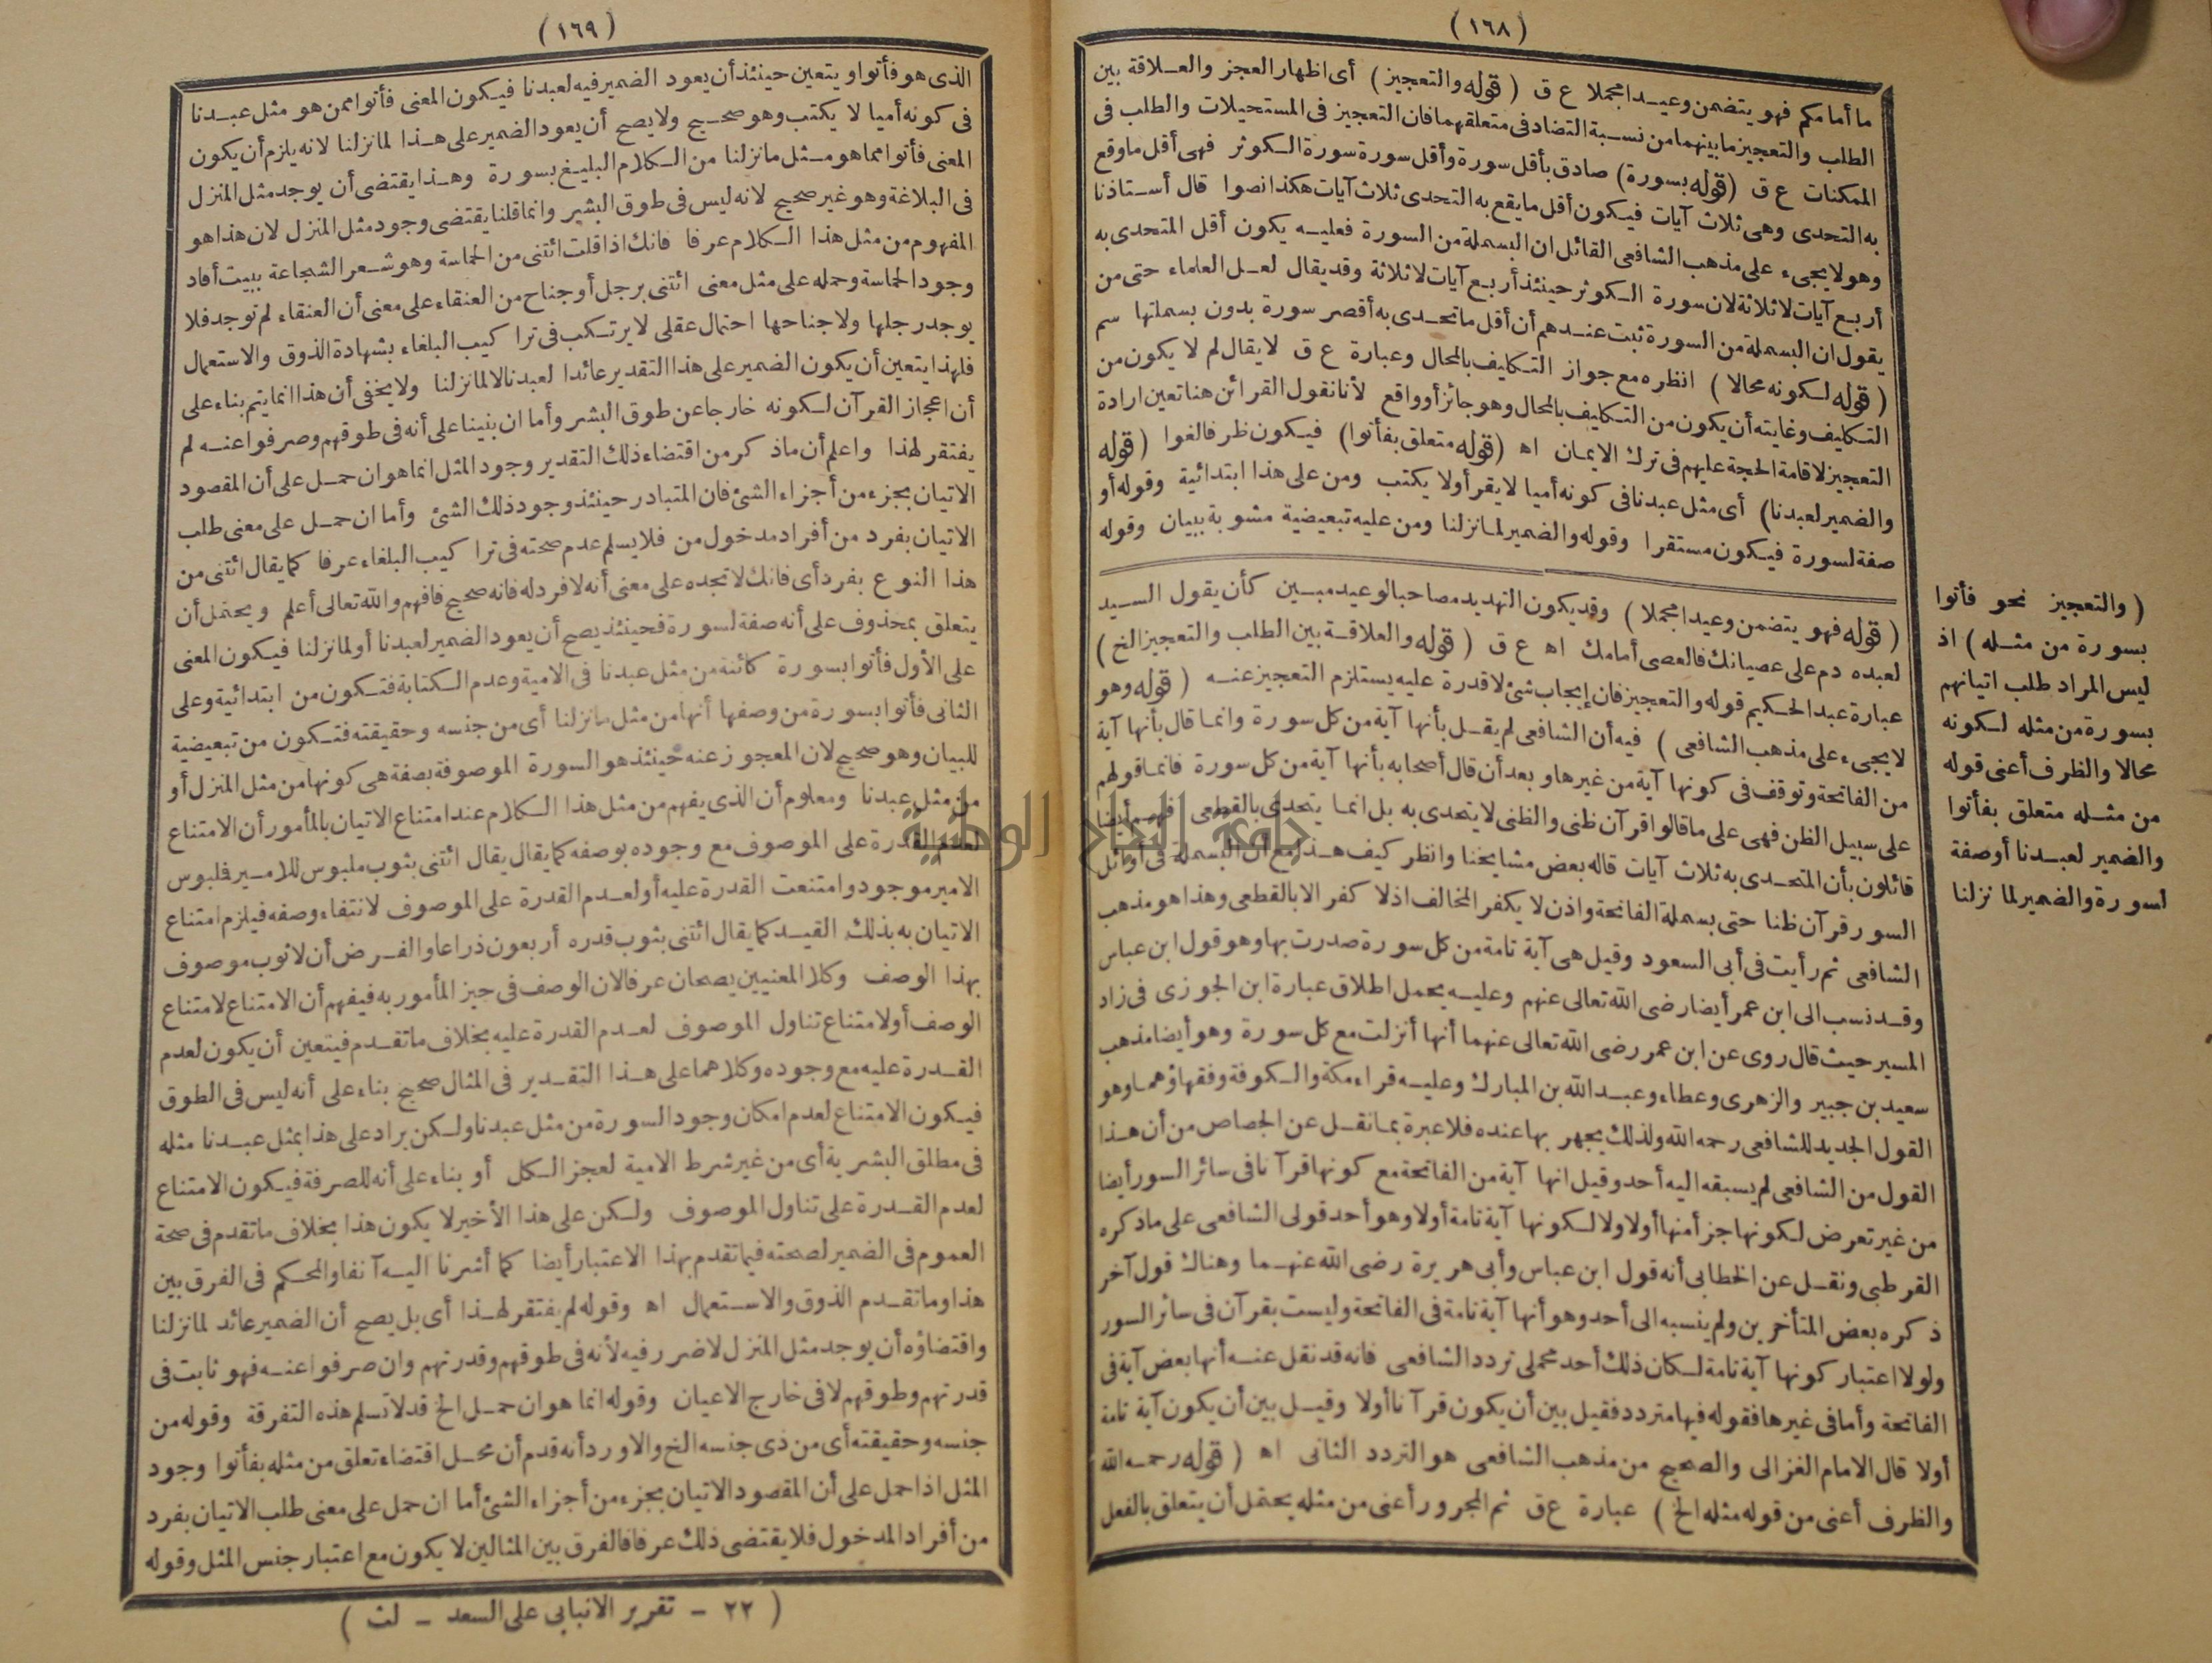 (١٦٨)
ما أمامكم فهو يتضمن وعيدا مجملا ع ق (قوله والتعجيز) أى اظهار العجز والعلاقة بين
الطلب والتعجيز ما بينهما من نسبة التضاد فى متعلقهما فان التعجيز فى المستحيلات والطلب فى
الممكنات ع ق (قوله بسورة) صادق بأقل سورة وأقل سورة سورة الكوثر فهى أقل ما وقع
به التحدى وهى ثلاث آيات فيكون أقل ما يقع به التحدى ثلاث آيات هكذا نصوا قال أستاذنا
وهو لا يجىء على مذهب الشافعى القائل ان البسملة من السورة فعليه يكون أقل المتحدى به
أربع آيات لا ثلاثة لان سورة الكوثر حينئذ أربع آيات لا ثلاثة وقد يقال لعل العلماء حتى من
يقول ان البسملة من السورة ثبت عندهم أن أقل ما تحدى به أقصر سورة بدون بسملتها سم
(قوله لكونه محالا) انظره مع جواز التكليف بالمحال وعبارة ع ق لا يقال لم لا يكون من
التكليف وغايته أن يكون من التكليف بالمحال وهو جائز أو واقع لأنا نقول القرائن هنا تعين ارادة
التعجيز لاقامة الحجة عليهم فى ترك الايمان اه (قوله متعلق بفأتوا) فيكون ظرفا لغوا (قوله
والضمير لعبدنا) أى مثل عبدنا فى كونه أميا لا يقرأ ولا يكتب ومن على هذا ابتدائية وقوله أو
صفة لسورة فيكون مستقرا وقوله والضمير لما نزلنا ومن عليه تبعيضية مشوبة ببيان وقوله
(قوله فهو يتضمن وعيدا مجملا) وقد يكون التهديد مصاحبا لوعيد مبين كأن يقول السيد
لعبده دم على عصيانك فالعصى أمامك اه ع ق (قوله والعلاقة بين الطلب والتعجيز الخ)
عبارة عبد الحكيم قوله والتعجيز فان إيجاب شئ لا قدرة عليه يستلزم التعجيز عنه (قوله وهو
لا يجىء على مذهب الشافعى) فيه أن الشافعى لم يقل بأنها آية من كل سورة وانما قال بأنها آية
من الفاتحة وتوقف فى كونها آية من غيرها وبعد أن قال أصحابه بأنها آية من كل سورة فانما قولهم
على سبيل الظن فهى على ما قالوا قرآن ظنى والظنى لا يتحدى به بل انما يتحدى بالقطعى فهم أيضا
قائلون بأن المتحدى به ثلاث آيات قاله بعض مشايخنا وانظر كيف هذا مع أن البسملة فى أوائل
السور قرآن ظنا حتى بسملة الفاتحة واذن لا يكفر المخالف اذ لا كفر الا بالقطعى وهذا هو مذهب
الشافعى ثم رأيت فى أبى السعود وقيل هى آية تامة من كل سورة صدرت بها وهو قول ابن عباس
وقد نسب الى ابن عمر أيضا رضى الله تعالى عنهم وعليه يحمل اطلاق عبارة ابن الجوزى فى زاد
المسير حيث قال روى عن ابن عمر رضى الله تعالى عنهما أنها أنزلت مع كل سورة وهو أيضا مذهب
سعيد بن جبير والزهرى وعطاء وعبد الله بن المبارك وعليه قراء مكة والكوفة وفقهاؤهما وهو
القول الجديد للشافعى رحمه الله ولذلك يجهر بها عنده فلا عبرة بما نقل عن الجصاص من أن هذا
القول من الشافعى لم يسبقه اليه أحد وقيل انها آية من الفاتحة مع كونها قرآنا فى سائر السور أيضا
من غير تعرض لكونها جزأ منها أولا ولا لكونها آية تامة أولا وهو أحد قولى الشافعى على ما ذكره
القرطبى ونقل عن الخطابى أنه قول ابن عباس وأبى هريرة رضى الله عنهما وهناك قول آخر
ذكره بعض المتأخرين ولم ينسبه الى أحد وهو أنها آية تامة فى الفاتحة وليست بقرآن فى سائر السور
ولولا اعتبار كونها آية تامة لكان ذلك أحد محملى تردد الشافعى فانه قد نقل عنه أنها بعض آية فى
الفاتحة وأما فى غيرها فقوله فيها متردد فقيل بين أن يكون قرآنا أولا وقيل بين أن يكون آية تامة
أولا قال الامام الغزالى والصحيح من مذهب الشافعى هو التردد الثانى اه (قوله رحمه الله
والظرف أعنى من قوله مثله الخ) عبارة ع ق ثم المجرور أعنى من مثله يحتمل أن يتعلق بالفعل
(والتعجيز نحو فأتوا
بسورة من مثله) اذ
ليس المراد طلب اتيانهم
بسورة من مثله لكونه
محالا والظرف أعنى قوله
من مثله متعلق بفأتوا
والضمير لعبدنا أو صفة
لسورة والضمير لما نزلنا
(١٦٩)
الذى هو فأتوا ويتعين حينئذ أن يعود الضمير فيه لعبدنا فيكون المعنى فأتوا ممن هو مثل عبدنا
فى كونه أميا لا يكتب وهو صحيح ولا يصح أن يعود الضمير على هذا لما نزلنا لانه يلزم أن يكون
المعنى فأتوا مما هو مثل ما نزلنا من الكلام البليغ بسورة وهذا يقتضى أن يوجد مثل المنزل
فى البلاغة وهو غير صحيح لانه ليس فى طوق البشير وانما قلنا يقتضى وجود مثل المنزل لان هذا هو
المفهوم من مثل هذا الكلام عرفا فانك اذا قلت ائتنى من الحماسة وهو شعر الشجاعة ببيت أفاد
وجود الحماسة وحمله على مثل معنى ائتنى برجل أو جناح من العنقاء على معنى أن العنقاء لم توجد فلا
يوجد رجلها ولا جناحها احتمال عقلى لا يرتكب فى تراكيب البلغاء بشهادة الذوق والاستعمال
فلهذا يتعين أن يكون الضمير على هذا التقدير عائدا لعبدنا لا لما نزلنا ولا يخفى أن هذا انما يتم بناء على
أن اعجاز القرآن لكونه خارجا عن طوق البشر وأما ان بنينا على أنه فى طوقهم وصرفوا عنه لم
يفتقر لهذا واعلم أن ما ذكر من اقتضاء ذلك التقدير وجود المثل انما هو ان حمل على أن المقصود
الاتيان بجزء من أجزاء الشئ فان المتبادر حينئذ وجود ذلك الشئ وأما ان حمل على معنى طلب
الاتيان بفرد من أفراد مدخول من فلا يسلم عدم صحته فى تراكيب البلغاء عرفا كما يقال ائتنى من
هذا النوع بفرد أى فانك لا تجده على معنى أنه لا فرد له فانه صحيح فافهم والله تعالى أعلم ويحتمل أن
يتعلق بمحذوف على أنه صفة لسورة فحينئذ يصح أن يعود الضمير لعبدنا أو لما نزلنا فيكون المعنى
على الأول فأتوا بسورة كائنة من مثل عبدنا فى الامية وعدم الكتابة فتكون من ابتدائية وعلى
الثانى فأتوا بسورة من وصفها أنها من مثل ما نزلنا أى من جنسه وحقيقته فتكون من تبعيضية
للبيان وهو صحيح لان المعجوز عنه حينئذ هو السورة الموصوفة بصفة هى كونها من مثل المنزل أو
من مثل عبدنا ومعلوم أن الذى يفهم من مثل هذا الكلام عند امتناع الاتيان بالمأمور أن الامتناع
لعدم القدرة على الموصوف مع وجوده بوصفه كما يقال يقال ائتنى بثوب ملبوس للامير فلبوس
الامير موجود وامتنعت القدرة عليه أو لعدم القدرة على الموصوف لانتفاء وصفه فيلزم امتناع
الاتيان به بذلك القيد كما يقال ائتنى بثوب قدره أربعون ذراعا والفرض أن لا ثوب موصوف
بهذا الوصف وكلا المعنيين يصحان عرفا لان الوصف فى حيز المأمور به فيفهم أن الامتناع لامتناع
الوصف أو لامتناع تناول الموصوف لعدم القدرة عليه بخلاف ما تقدم فيتعين أن يكون لعدم
القدرة عليه مع وجوده وكلاهما على هذا التقدير فى المثال صحيح بناء على أنه ليس فى الطوق
فيكون الامتناع لعدم امكان وجود السورة من مثل عبدنا ولكن يراد على هذا بمثل عبدنا مثله
فى مطلق البشرية أى من غير شرط الامية لعجز الكل أو بناء على أنه للصرفة فيكون الامتناع
لعدم القدرة على تناول الموصوف ولكن على هذا الأخير لا يكون هذا بخلاف ما تقدم فى صحة
العموم فى الضمير لصحته فيما تقدم بهذا الاعتبار أيضا كما أشرنا اليه آنفا والمحكم فى الفرق بين
هذا وما تقدم الذوق والاستعمال اه وقوله لم يفتقر لهذا أى بل يصح أن الضمير عائد لما نزلنا
واقتضاؤه أن يوجد مثل المنزل لا ضرر فيه لأنه فى طوقهم وقدرتهم وان صرفوا عنه فهو ثابت فى
قدرتهم وطوقهم لا فى خارج الاعيان وقوله انما هو ان حمل الخ قد لا تسلم هذه التفرقة وقوله من
جنسه وحقيقته أى من ذى جنسه الخ والا ورد أنه قدم أن محل اقتضاء تعلق من مثله بفأتوا وجود
المثل اذا حمل على أن المقصود الاتيان بجزء من أجزاء الشئ أما ان حمل على معنى طلب الاتيان بفرد
من أفراد المدخول فلا يقتضى ذلك عرفا فالفرق بين المثالين لا يكون مع اعتبار جنس المثل وقوله
(٢٢ - تقرير الانبابى على السعد - لث)
جامعة النجاح الوطنية